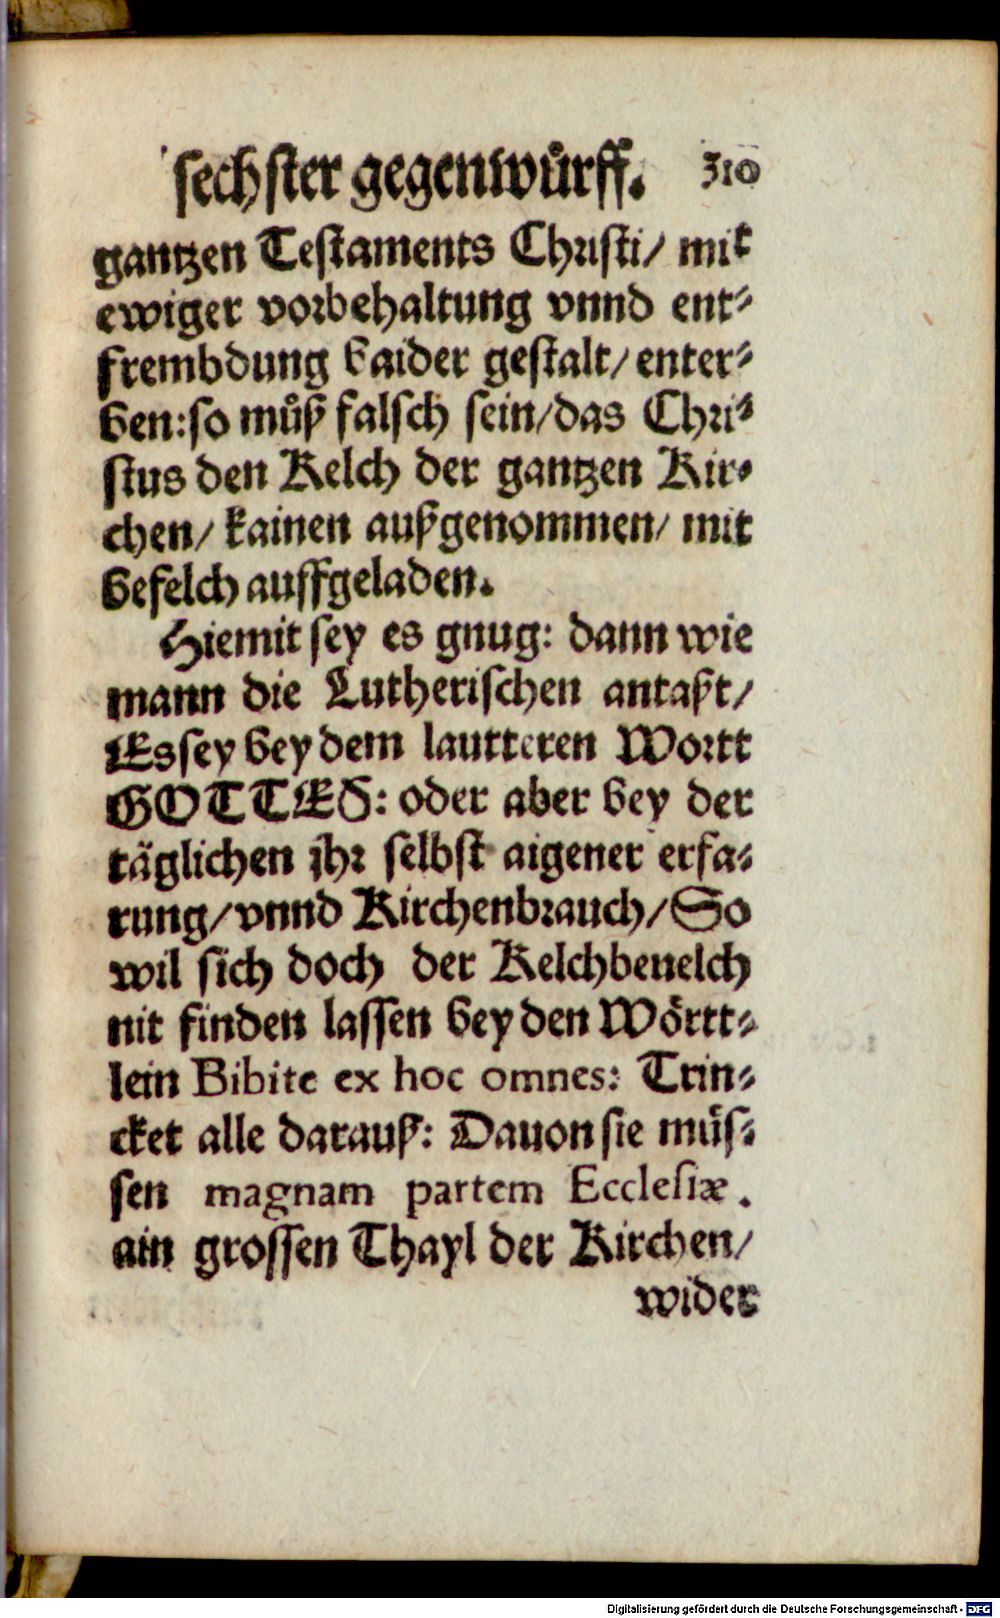 sechster gegenwůrff. 310
gantzen Testaments Christi/ mit
ewiger vorbehaltung vnnd ent⸗
frembdung baider gestalt/ enter⸗
ben: so můß falsch sein/ das Chri⸗
stus den Kelch der gantzen Kir⸗
chen/ kainen außgenommen/ mit
befelch auffgeladen.
Hiemit sey es gnug: dann wie
mann die Lutherischen antaßt/
Es sey bey dem lautteren Wortt
GOTTES: oder aber bey der
täglichen jhr selbst aigener erfa⸗
rung/ vnnd Kirchenbrauch/ So
wil sich doch der Kelchbeuelch
nit finden lassen bey den Wörtt⸗
lein Bibite ex hoc omnes: Trin⸗
cket alle darauß: Dauon sie müs⸗
sen magnam partem Ecclesiæ.
ain grossen Thayl der Kirchen/
wider
Digitalisierung gefördert durch die Deutsche Forschungsgemeinschaft - DFG